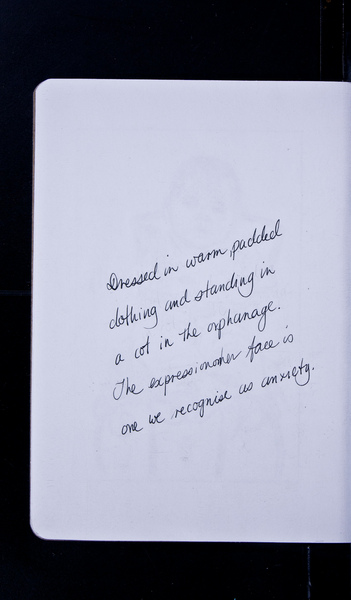 Dressed in warm, padded
clothing and standing in
a cot in the orphanage.
The expression on her face is
one we recognise as anxiety.